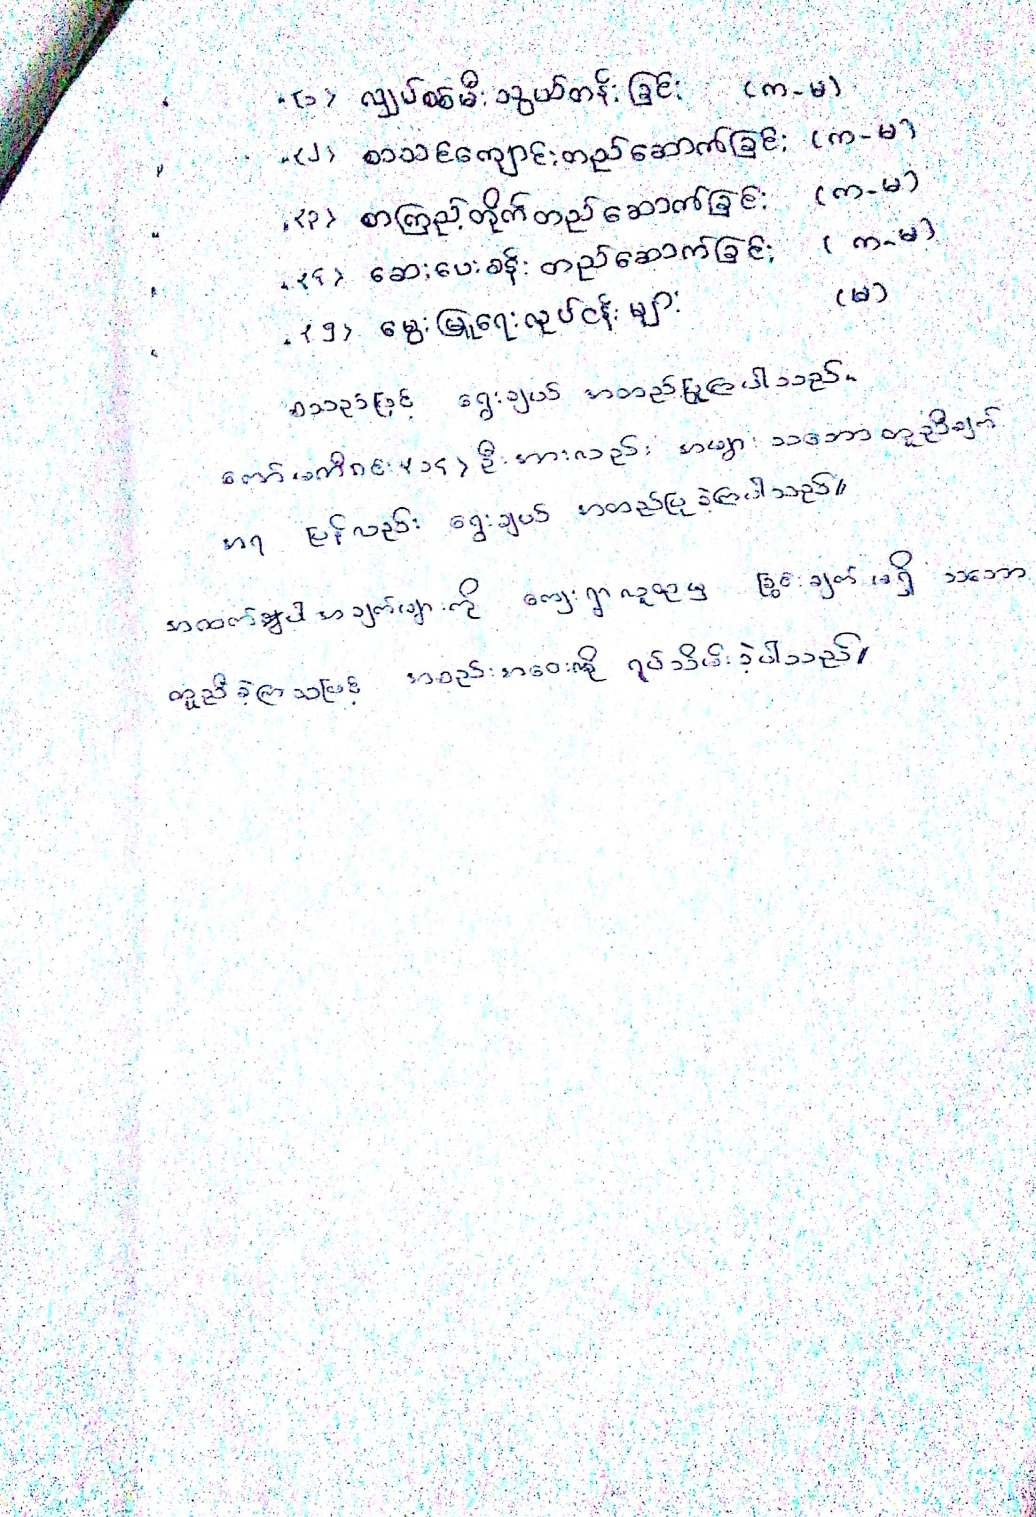 (၁) လျှပ်စစ်မီးသွယ်တန်းခြင်း (က-မ)
(၂) စာသင်ကျောင်းတည်ဆောက်ခြင်း (က-မ)
(၃) စာကြည့်တိုက်တည်ဆောက်ခြင်း (က-မ)
(၄) ဆေးပေးခန်းတည်ဆောက်ခြင်း (က-မ)
(၅) မွေးမြူရေးလုပ်ငန်းများ (မ)
စသည်ဖြင့် ရွေးချယ် အတည်ပြုကြပါသည်။
ကော်မတီဝင် (၁၄) ဦးအားလည်း အများသဘောတူညီချက်
အရ ပြန်လည်း ရွေးချယ် အတည်ပြုခဲ့ကြပါသည်။
အထက်ဖြပါအချက်များကို ကျေးရွာလူထုမှ ခြွင်းချက်မရှိ သဘော
တူညီခဲ့ကြသဖြင့် အစည်းအဝေးကို ရုပ်သိမ်းခဲ့ပါသည်။